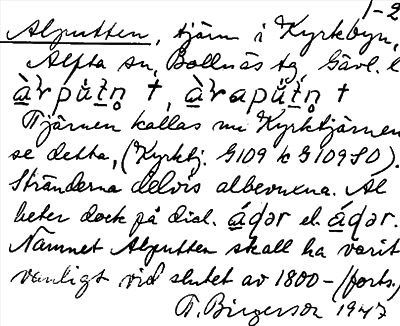 1-2
Alputten, tjärn i Kyrkbyn,
Alfta sn, Bollnäs tg, Gävl. l.
àrput̠n̥ †, àraput̠n̥ †
Tjärnen kallas nu Kyrktjärnen
se detta, (Kyrktj. G109 k G109SO).
Stränderna delvis albevuxna. Al
heter dock på dial. áqər el. áqər.
Namnet Alputten skall ha varit
vanligt vid slutet av 1800- (forts.)
T. Birgerson 1947